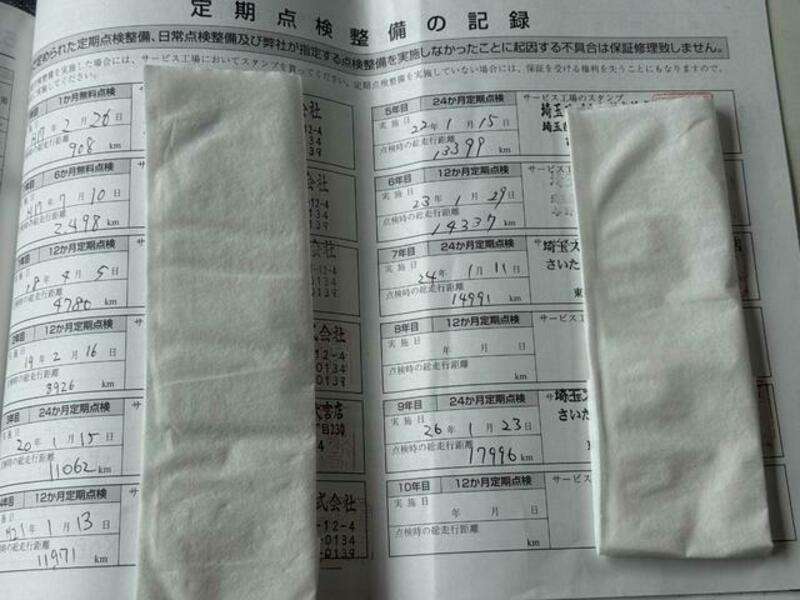 定期点検整備の記録
められた定期点検整備、日常点検整備及び弊社が指定する点検整備を実施しなかったことに起因する不具合は保証修理致しません。
検整備を実施した場合には、サービス工場においてスタンプを貰ってください。定期点検整備を実施していない場合には、保証を受ける権利を失うこともなりますので、
実施してください。
1か月無料点検
H17年 2月 26日
時の総走行距離
908 km
6か月無料点検
H17年 7月 10日
の総走行距離
2,498 km
12か月定期点検
18年 4月 5日
の総走行距離
4780 km
2年目 12か月定期点検
19年 2月 16日
の総走行距離
8926 km
24か月定期点検
20年 1月 15日
時の総走行距離
11062 km
12か月定期点検
H21年 1月 13日
の総走行距離
11971 km
5年目 24か月定期点検 サービス工場のスタンプ
実施日
22年 1月 15日
点検時の総走行距離
13399 km
埼玉
埼玉
6年目 12か月定期点検 サービス
実施日
23年 1月 29日
点検時の総走行距離
14337 km
7年目 24か月定期点検
実施日
24年 1月 11日
点検時の総走行距離
14991 km
埼玉ス
さいた
8年目 12か月定期点検 サービスエ
実施日
年 月 日
点検時の総走行距離
km
9年目 24か月定期点検
実施日
26年 1月 23日
点検時の総走行距離
17996 km
埼玉ス
さいた
10年目 12か月定期点検 サービスエ
実施日
年 月 日
点検時の総走行距離
km